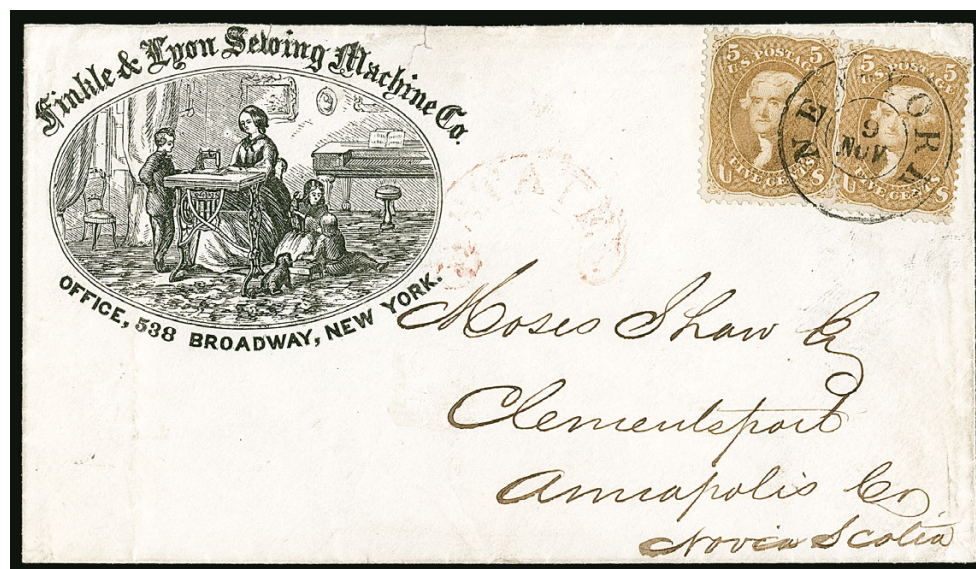 Finkle & Lyon Sewing Machine Co.
OFFICE, 538 BROADWAY, NEW YORK.
5 U.S. POSTAGE 5
FIVE CENTS
U S
5 U.S. POSTAGE 5
FIVE CENTS
U S
NEW YORK
9
NOV
Moses Shaw
Clementsport
Annapolis Co
Novia Scotia